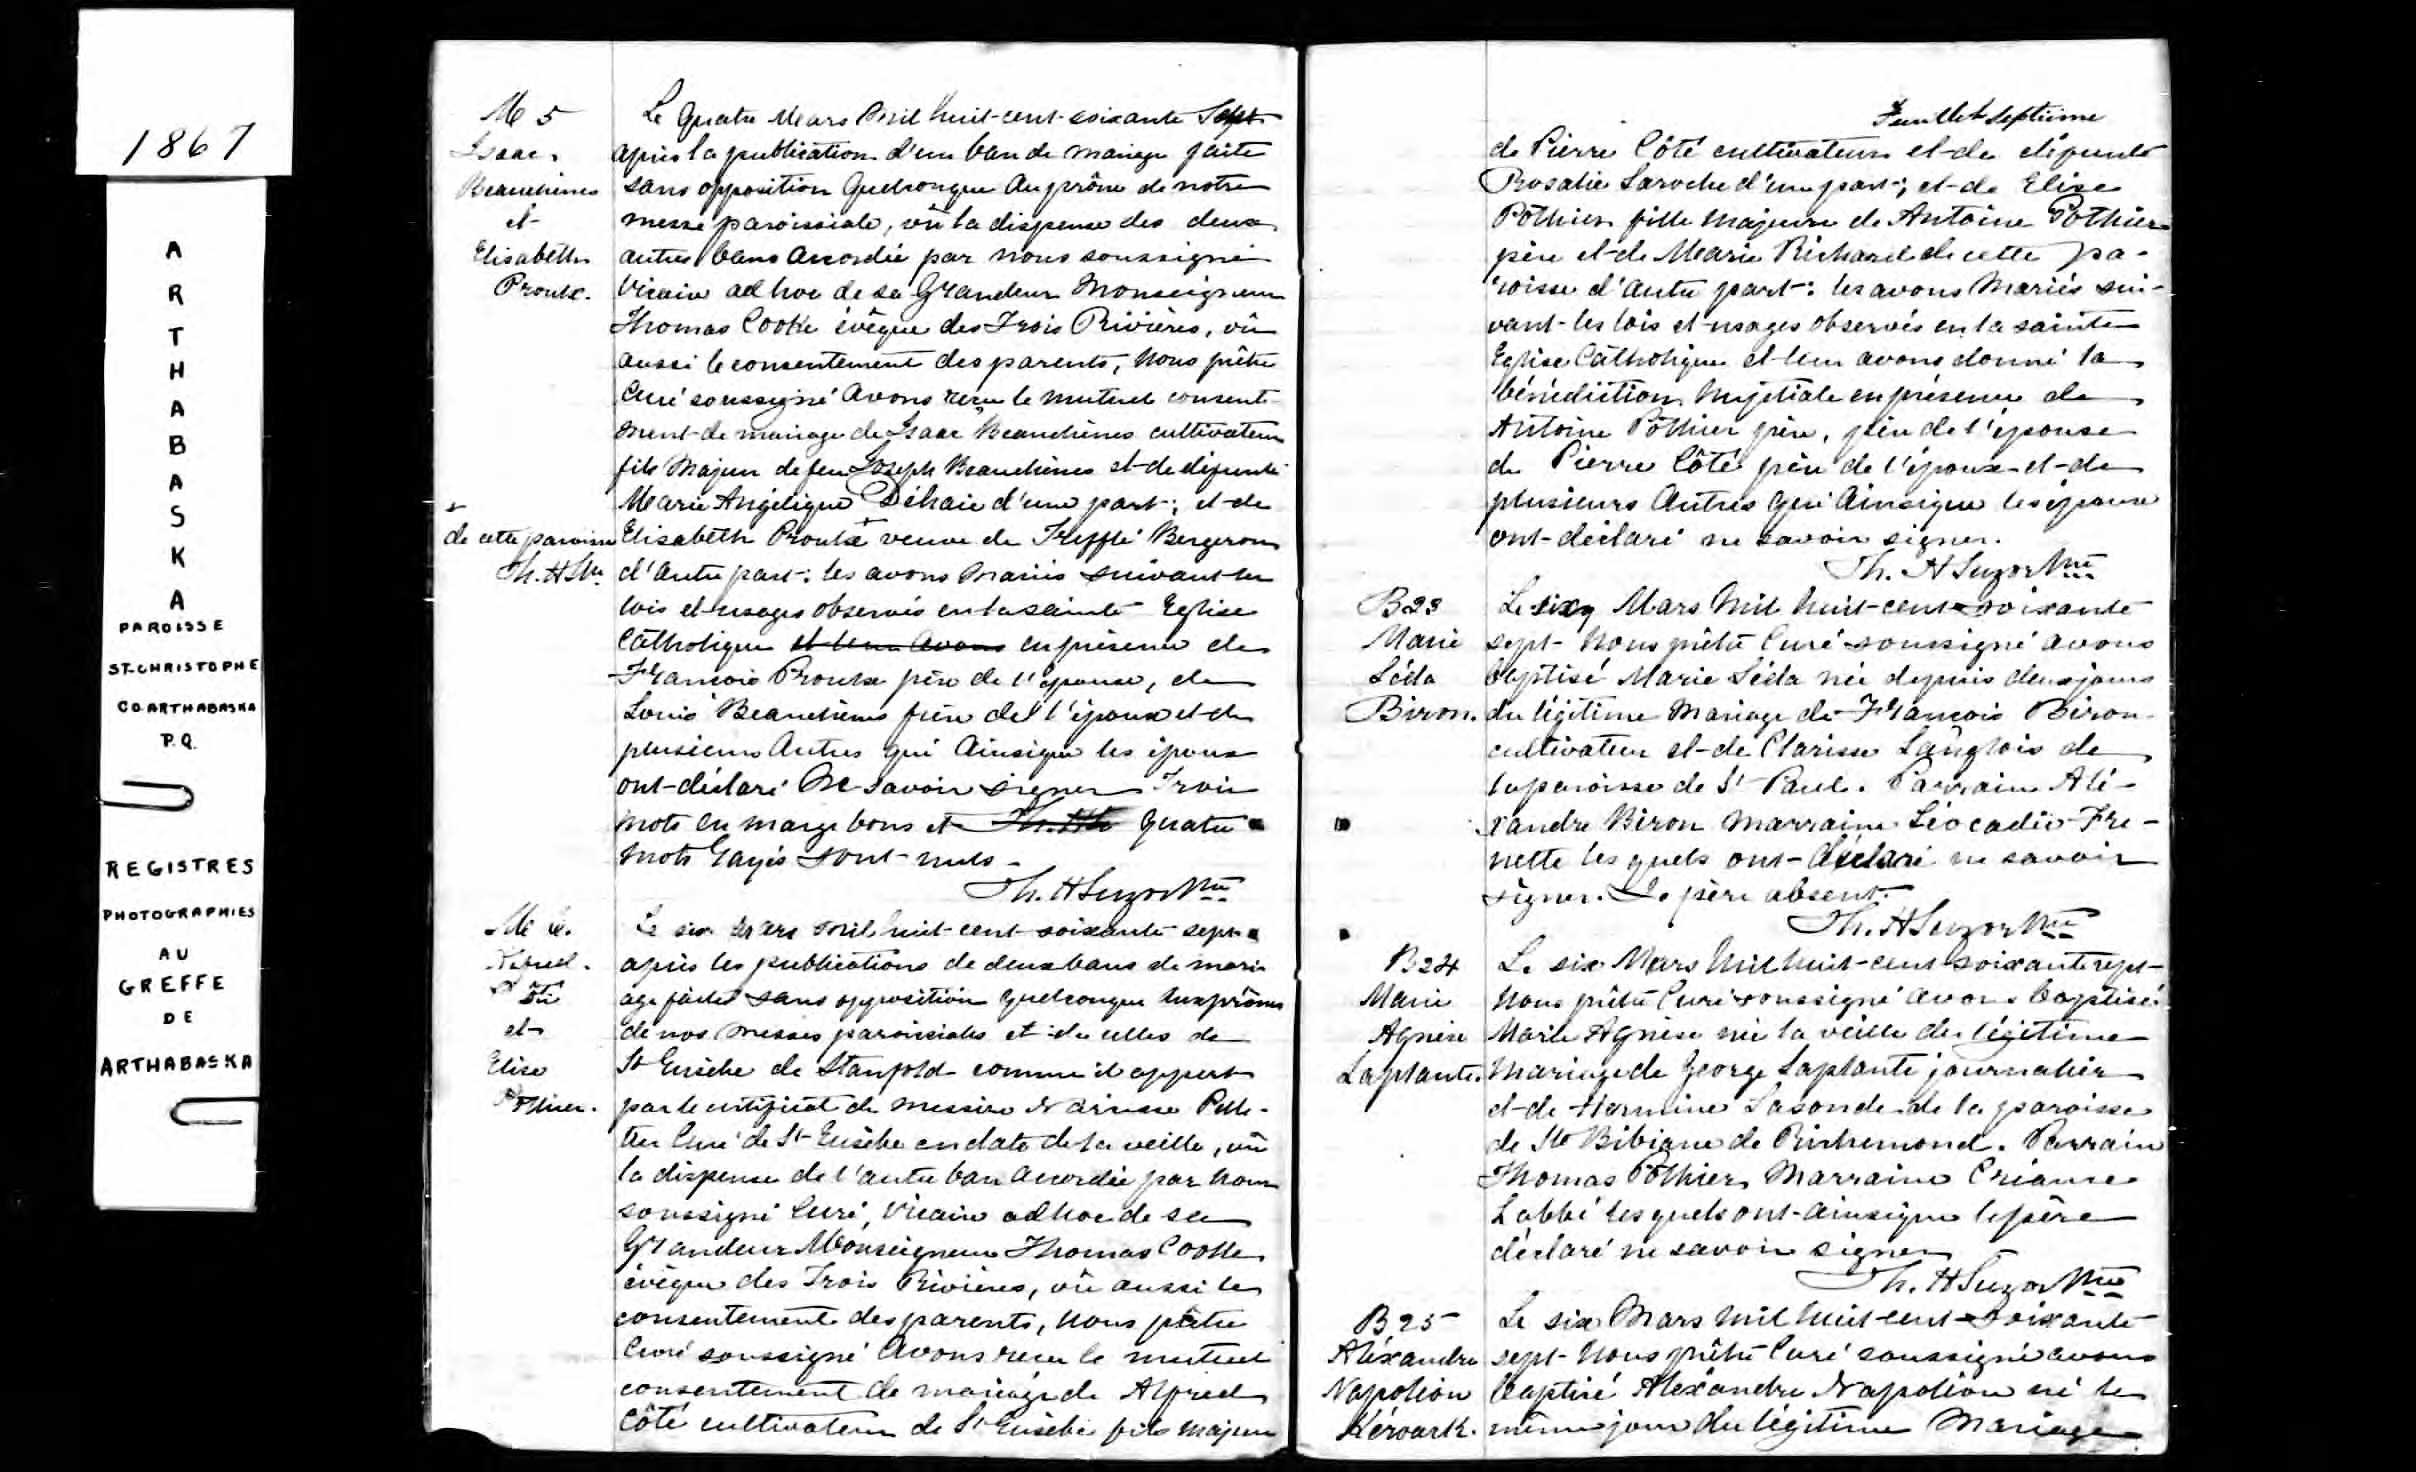 1867
ARTHABASKA
PAROISSE
ST-CHRISTOPHE
CO ARTHABASKA
P.Q.
REGISTRES
PHOTOGRAPHIES
AU
GREFFE
DE
ARTHABASKA
M 5
Isaac
Beauchènes
et
Elisabeth
Proulx.
Le quatre Mars Mil huit-cent-soixante Sept
après la publication d'un ban de mariage faite
sans opposition quelconque au prône de notre
messe paroissiale, vû la dispense des deux
autres bans accordée par nous soussigné
Vicaire ad hoc de sa Grandeur Monseigneur
Thomas Cooke évêque des Trois Rivières, vû
aussi le consentement des parents, Nous prêtre
Curé soussigné avons reçu le mutuel consente
ment de mariage de Isaac Beauchènes cultivateur
fils Majeur de feu Joseph Beauchènes et de défunte
Marie Angélique Déhaie d'une part; et de
+
de cette paroisse
Th. H Sr.
Elisabeth Proulx + veuve de Trefflé Bergeron
d'autre part: les avons Mariés suivant les
lois et usages observés en la sainte Eglise
Catholique et leur avons en présence de
François Proulx père de l'épouse, de
Louis Beauchènes frère de l'époux et de
plusieurs Autres qui Ainsique les époux
ont-déclaré Ne savoir signer Trois
mots en marge bons et Th. H Quatre
mots Rayés sont nuls.
Th. H Suzor Ptre
M 6.
Alfred
Côté
et
Elise
Pothier.
Le six Mars mil huit-cent-soixante-sept
après les publications de deux bans de mari
age faites sans opposition quelconque aux prônes
de nos messes paroissiales et de celles de
St Eusèbe de Stanfold comme il appert
par le certificat de messire Narcisse Pelle-
tier Curé de St Eusèbe en date de la veille, vû
la dispense de l'autre ban accordée par nous
soussigné Curé, Vicaire ad hoc de sa
Grandeur Monseigneur Thomas Cooke
évêque des Trois Rivières, vû aussi le
consentement des parents, Nous prêtre
Curé soussigné avons reçu le mutuel
consentement de mariage de Alfred
Côté cultivateur de St Eusèbe fils majeur
Feuillet septième
de Pierre Côté cultivateur et de défunte
Rosalie Laroche d'une part; et de Elise
Pothier fille majeure de Antoine Pothier
père et de Marie Richard de cette pa-
roisse d'autre part: les avons Mariés sui-
vant les lois et usages observés en la sainte
Eglise Catholique et leur avons donné la
bénédiction Nuptiale en présence de
Antoine Pothier père, père de l'épouse
de Pierre Côté père de l'époux et de
plusieurs Autres qui Ainsique les époux
ont-déclaré ne savoir signer.
Th. H Suzor Ptre
B 23
Marie
Léda
Biron.
Le six Mars Mil huit-cent-soixante
sept Nous prêtre Curé soussigné avons
baptisé Marie Léda née depuis deux jours
du légitime Mariage de François Biron
cultivateur et de Clarisse Langlois de
la paroisse de St Paul. Parrain Alé-
xandre Biron Marraine Léocadie Fre-
nette lesquels ont-déclaré ne savoir
signer. Le père absent.
Th. H Suzor Ptre
B 24
Marie
Agnèse
Laplante.
Le six Mars Mil huit-cent-soixante-sept
Nous prêtre Curé soussigné avons baptisé
Marie Agnèse née la veille du légitime
Mariage de George Laplante journalier
et de Hermine Lasonde de la paroisse
de Ste Bibiane de Richemond. Parrain
Thomas Pothier, Marraine
Labbé lesquels ont-ainsique le père
déclaré ne savoir signer
Th. H Suzor Ptre
B 25
Aléxandre
Napoléon
Kéroark.
Le six Mars Mil huit-cent-soixante
sept Nous prêtre Curé soussigné avons
baptisé Aléxandre Napoléon né le
même jour du légitime Mariage